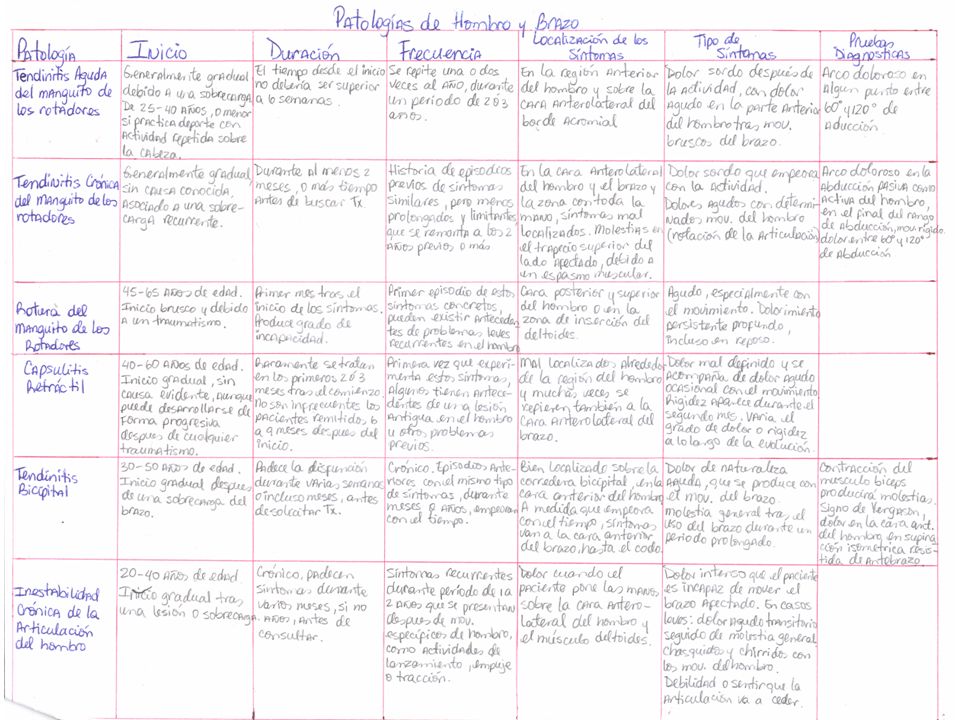 Patologías de Hombro y Brazo
Patología
Inicio
Duración
Frecuencia
Localización de los
Síntomas
Tipo de
Síntomas
Pruebas
Diagnosticas
Tendinitis Aguda
del manguito de
los rotadores
Generalmente gradual
debido a una sobrecarga
De 25-40 años, o menor
si practica deporte con
actividad repetida sobre
la cabeza.
El tiempo desde el inicio
no debería ser superior
a 6 semanas.
Se repite una o dos
veces al año, durante
un periodo de 2 ó 3
años.
En la región Anterior
del hombro y sobre la
cara Anterolateral del
borde Acromial
Dolor sordo después de
la actividad, con dolor
Agudo en la parte Anterior
del hombro tras mov.
bruscos del brazo.
Arco doloroso en
Algun punto entre
60° y 120° de
Aducción.
Tendinitis Crónica
del manguito de los
rotadores
Generalmente gradual,
sin causa conocida,
Asociado a una sobre-
carga recurrente.
Durante al menos 2
meses, o más tiempo
Antes de buscar Tx.
Historia de episodios
previos de síntomas
Similares, pero menos
prolongados y limitantes
que se remonta a los 2
años previos o más
En la cara Anterolateral
del hombro y el brazo y
la zona con toda la
mano, síntomas mal
localizados. Molestias en
el trapecio superior del
lado afectado, debido a
un espasmo muscular.
Dolor sordo que empeora
con la actividad.
Dolores Agudos con determi-
nados mov. del hombro
(rotación de la Articulación)
Arco doloroso en la
Abducción pasiva como
Activa del hombro,
en el final del rango
de Abducción, mov rígido.
dolor entre 60° y 120°
de Abducción
Rotura del
manguito de los
Rotadores
45-65 años de edad.
Inicio brusco y debido
a un traumatismo.
Primer mes tras el
inicio de los síntomas.
Produce grado de
incapacidad.
Primer episodio de estos
síntomas concretos,
pueden existir anteceden-
tes de problemas leves
recurrentes en el hombro
Cara posterior y superior
del hombro o en la
zona de inserción del
deltoides.
Agudo, especialmente con
el movimiento. Dolorimiento
persistente profundo,
incluso en reposo.
Capsulitis
Retráctil
40-60 años de edad.
Inicio gradual, sin
causa evidente, aunque
puede desarrollarse de
forma progresiva
despues de cualquier
traumatismo.
Raramente se tratan
en los primeros 2 ó 3
meses tras el comienzo
No son infrecuentes los
pacientes remitidos 6
a 9 meses despues del
inicio.
Primera vez que experi-
menta estos síntomas,
Algunos tienen antece-
dentes de una lesión
Antigua en el hombro
u otros problemas
previos.
Mal localizados alrededor
de la región del hombro
y muchas veces se
refieren también a la
cara Anterolateral del
brazo.
Dolor mal definido y se
acompaña de dolor agudo
ocasional con el movimiento.
Rigidez aparece durante el
segundo mes. Varia el
grado de dolor o rigidez
a lo largo de la evolución.
Tendinitis
Bicipital
30-50 años de edad.
Inicio gradual despues
de una sobrecarga del
brazo.
Padece la disfunción
durante varias semanas
o incluso meses, antes
de solicitar Tx.
Crónico. Episodios Ante-
riores con el mismo tipo
de síntomas, durante
meses o años, empeoran
con el tiempo.
Bien localizado sobre la
corredera bicipital, en la
cara anterior del hombro
A medida que empeora
con el tiempo, síntomas
van a la cara anterior
del brazo, hasta el codo.
Dolor de naturaleza
Aguda, que se produce con
el mov. del brazo.
molestia general tras el
uso del brazo durante un
periodo prolongado.
Contracción del
musculo biceps
producirá molestias.
Signo de Yergason,
dolor en la cara ant.
del hombro en supina-
ción isometrica resis-
tida de Antebrazo.
Inestabilidad
Crónica de la
Articulación
del hombro
20-40 años de edad
Inicio gradual tras
una lesión o sobrecarga.
Crónico, padecen
síntomas durante
varios meses, si no
años, antes de
consultar.
Síntomas recurrentes
durante período de 1 a
2 años que se presentan
despues de mov.
específicos de hombro,
como actividades de
lanzamiento, empuje
o tracción.
Dolor cuando el
paciente pone las manos
sobre la cara Antero-
lateral del hombro y
el músculo deltoides.
Dolor intenso que el paciente
es incapaz de mover el
brazo afectado. En casos
leves: dolor agudo transitorio
seguido de molestia general,
chasquidos y chirridos con
los mov. del hombro.
Debilidad o sentir que la
Articulación va a ceder.